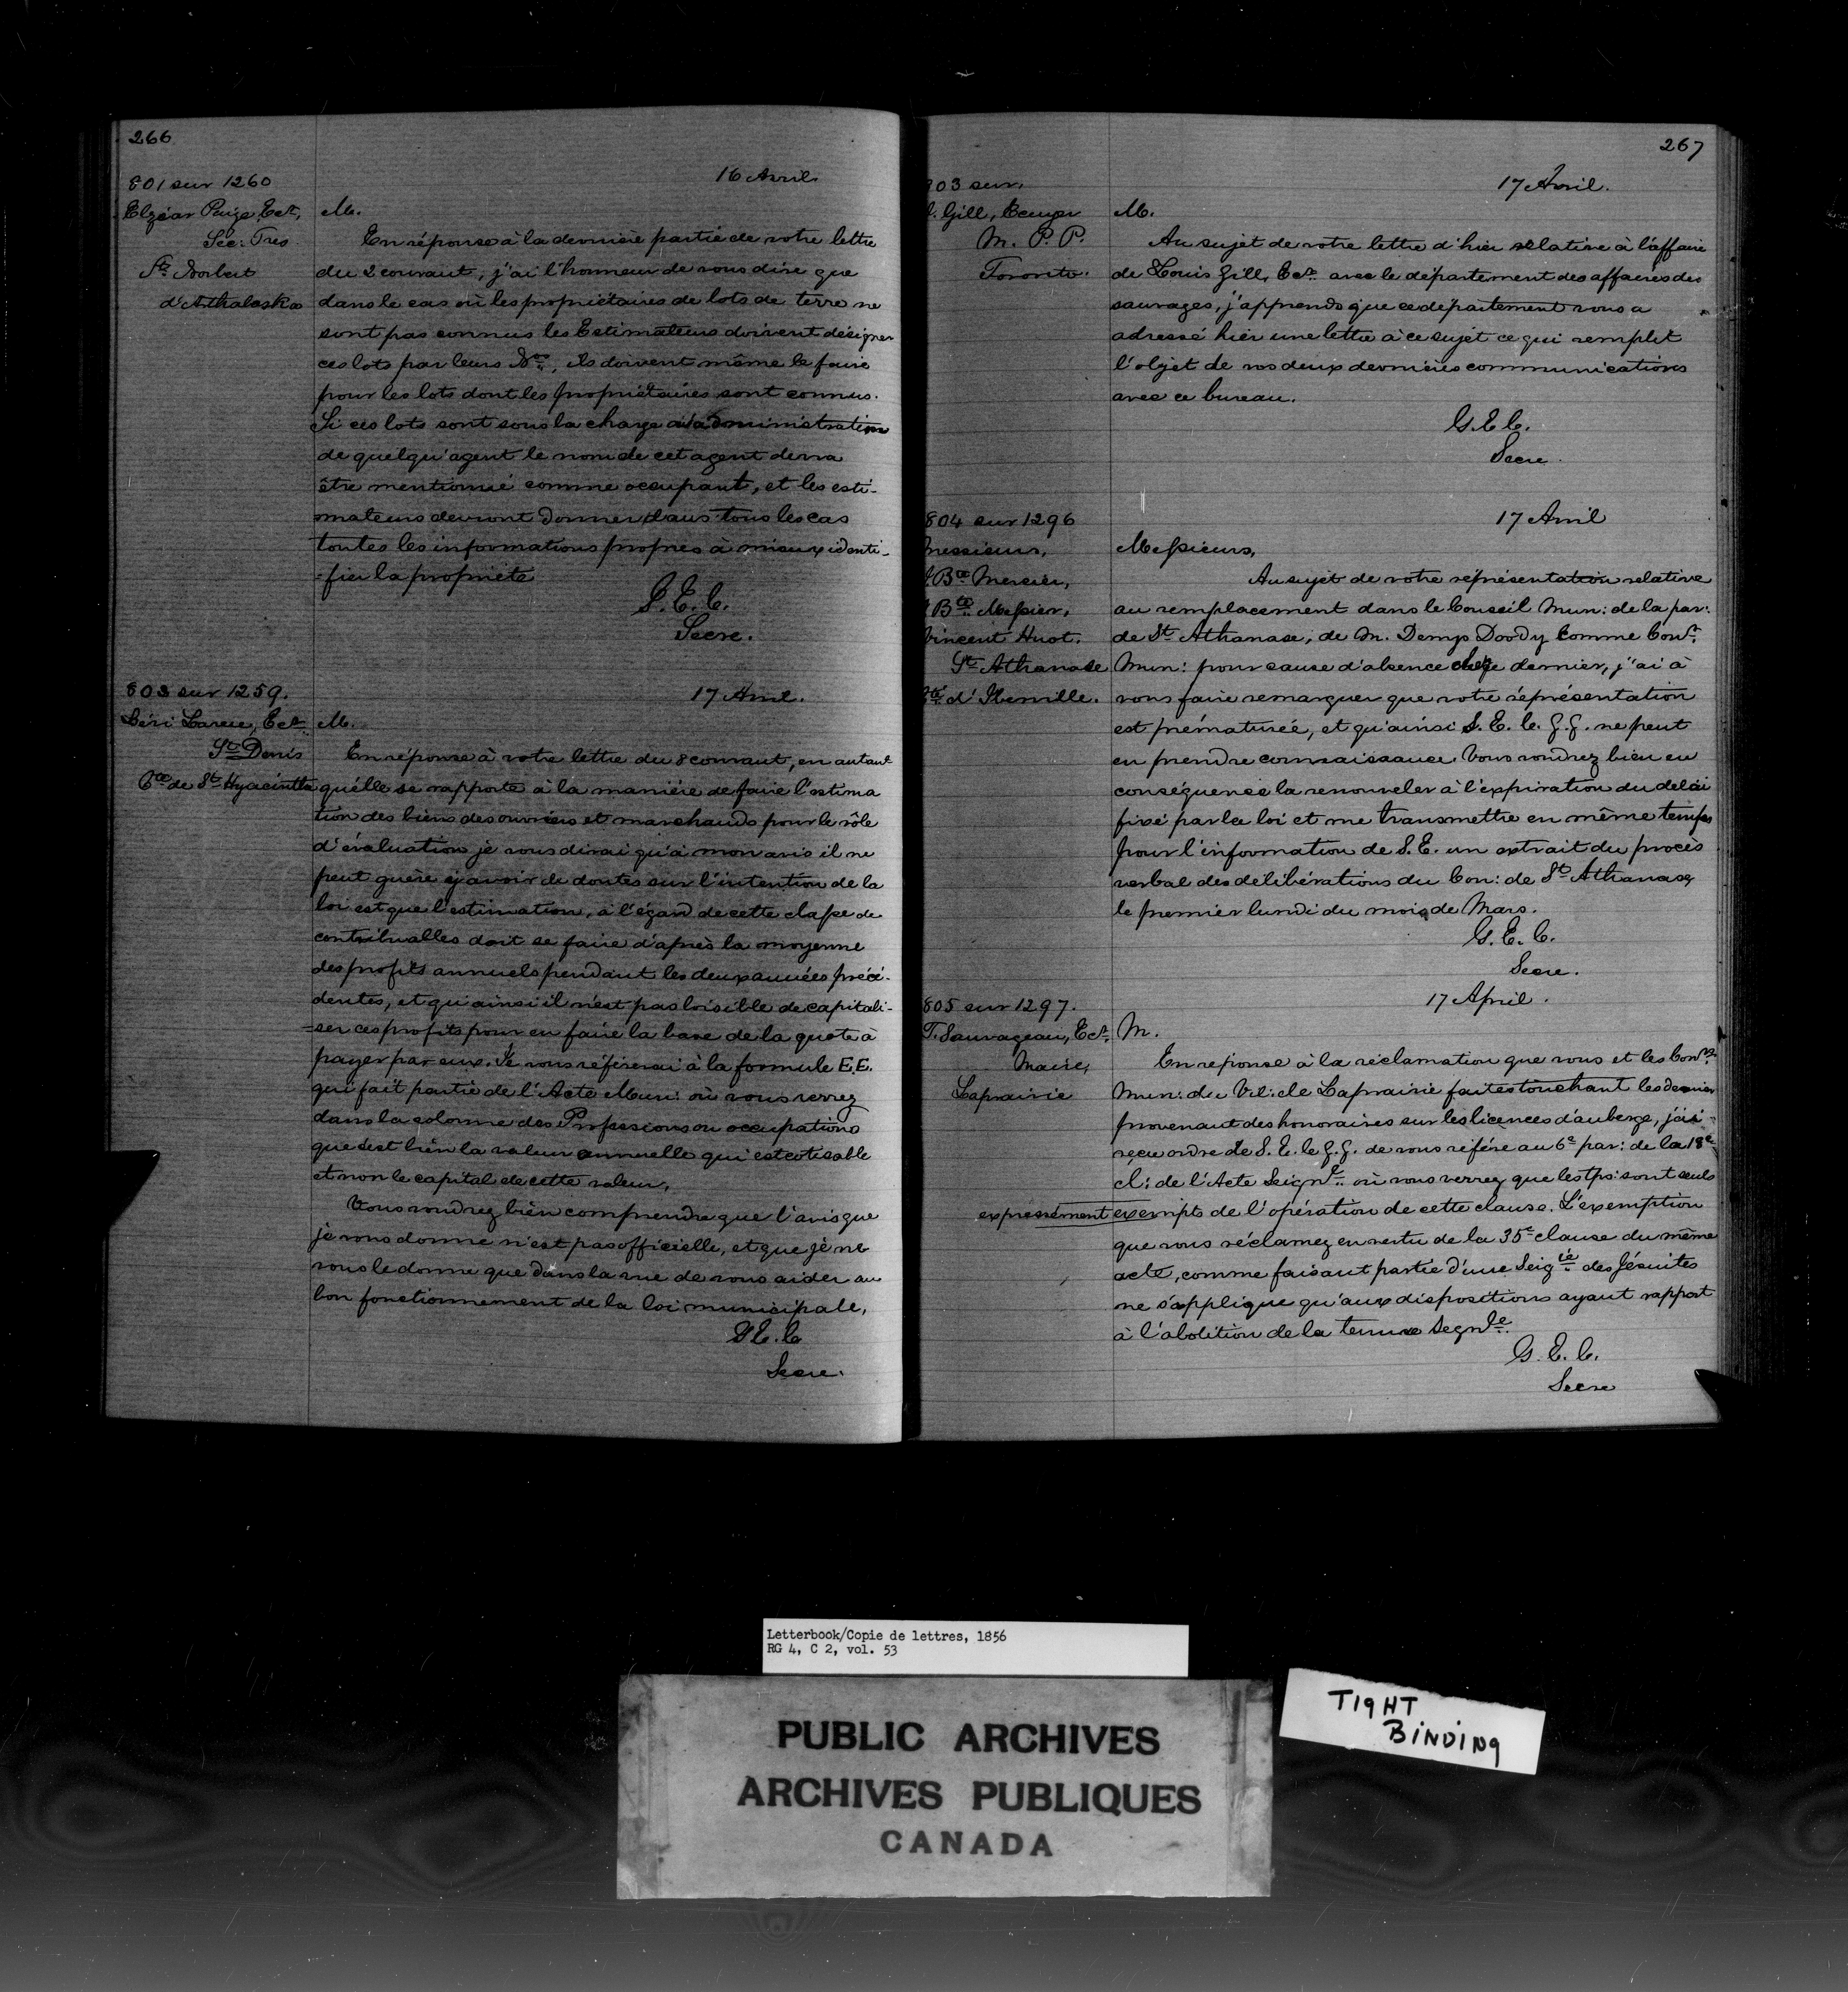 266
801 sur 1260
16 Avril
Elzéar Ecr,
Sec: Tres
St Norbert
d'Arthabaska
M.
En réponse à la dernière partie de votre lettre
du 2 courant, j'ai l'honneur de vous dire que
dans le cas où les propriétaires de lots de terre ne
sont pas connus les Estimateurs doivent désigner
ces lots par leurs Nos, ils doivent même le faire
pour les lots dont les propriétaires sont connus.
Si ces lots sont sous la charge administration
de quelqu'agent le nom de cet agent devra
être mentionné comme occupant, et les esti-
mateurs devront donner dans tous les cas
toutes les informations propres à mieux identi-
-fier la propriété
G. E. C.
Secre.
803 sur 1259.
17 Avril.
Léri Ecr
St Denis
Cté de St Hyacinthe
M.
En réponse à votre lettre du 8 courant, en autant
qu'elle se rapporte à la manière de faire l'estima
tion des biens des ouvriers et marchands pour le rôle
d'évaluation je vous dirai qu'à mon avis il ne
peut guère y avoir de doutes sur l'intention de la
loi est que l'estimation, à l'égard de cette classe de
contribuables doit se faire d'après la moyenne
des profits annuels pendant les deux années précé-
dentes, et qu'ainsi il n'est pas loisible de capitali-
=ser ces profits pour en faire la base de la quote à
payer par eux. Je vous référerai à la formule E.E.
qui fait partie de l'Acte Mun: où vous verrez
dans la colonne des Professions ou occupations
que c'est bien la valeur annuelle qui est cotisable
et non le capital de cette valeur,
Vous voudrez bien comprendre que l'avis que
je vous donne n'est pas officielle, et que je ne
vous le donne que dans la vue de vous aider au
bon fonctionnement de la loi municipale,
G E. C
Secre.
267
803 sur,
17 Avril.
Gill, Ecuyer
M. P. P.
Toronto.
M.
Au sujet de votre lettre d'hier relative à l'affaire
de Louis Gill, Ecr avec le département des affaires des
sauvages, j'apprends que ce département vous a
adressé hier une lettre à ce sujet ce qui remplit
l'objet de vos deux dernières communications
avec ce bureau.
G. E C.
Secre.
804 sur 1296
17 Avril
Messieurs,
Bte Mercier,
Bte Messier,
Vincent Huot.
St Athanase
Cté d'Iberville.
Messieurs,
Au sujet de votre représentation relative
au remplacement dans le Conseil Mun: de la par:
de St Athanase, de M. Demys Doody Comme Conr
Mun: pour cause d'absence dernier, j'ai à
vous faire remarquer que votre représentation
est prématurée, et qu'ainsi S. E. le G. G. ne peut
en prendre connaissance. Vous voudrez bien en
conséquence la renouveler à l'expiration du délai
fixé par la loi et me transmettre en même temps
pour l'information de S. E. un extrait du procès
verbal des délibérations du Con: de St Athanase,
le premier lundi du mois de Mars.
G. E. C.
Secre.
805 sur 1297.
17 April.
T. Sauvageau, Ecr,
Maire,
Laprairie
M.
En réponse à la réclamation que vous et les Conrs
Mun: du Vil: de Laprairie faites touchant les deniers
provenant des honoraires sur les licences d'auberge, j'ai
reçu ordre de S. E. le G. G. de vous référer au 6e par: de la 18e
cl: de l'Acte Seignl où vous verrez que les tps: sont seuls
expressément exempts de l'opération de cette clause. L'exemption
que vous réclamez en vertu de la 35e clause du même
acte, comme faisant partie d'une Seigie des Jésuites
ne s'applique qu'aux dispositions ayant rapport
à l'abolition de la tenure Segnle.
G. E. C.
Secre
Letterbook/Copie de lettres, 1856
RG 4, C 2, vol. 53
PUBLIC ARCHIVES
ARCHIVES PUBLIQUES
CANADA
TIGHT
BINDING